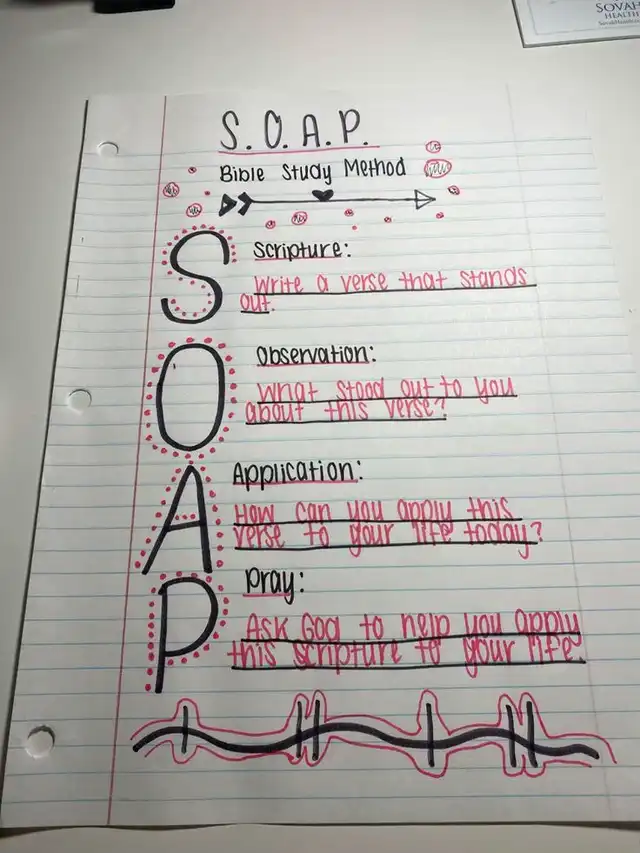 SOVAH
HEALTH
S.O.A.P.
Bible Study Method
S
Scripture:
Write a verse that stands
out.
O
Observation:
What stood out to you
about this verse?
A
Application:
How can you apply this
verse to your life today?
P
Pray:
Ask God to help you apply
this scripture to your life